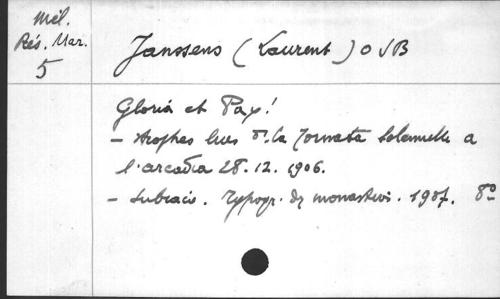 Mél.
Rés. Mar.
5
Janssens (Laurent) OSB
Gloria et Pax!
– Strophes lues à la Tornata Solennelle a
l'arcadia 28.12.1906.
– Subiaco. Typogr. des monastères. 1907. 8°